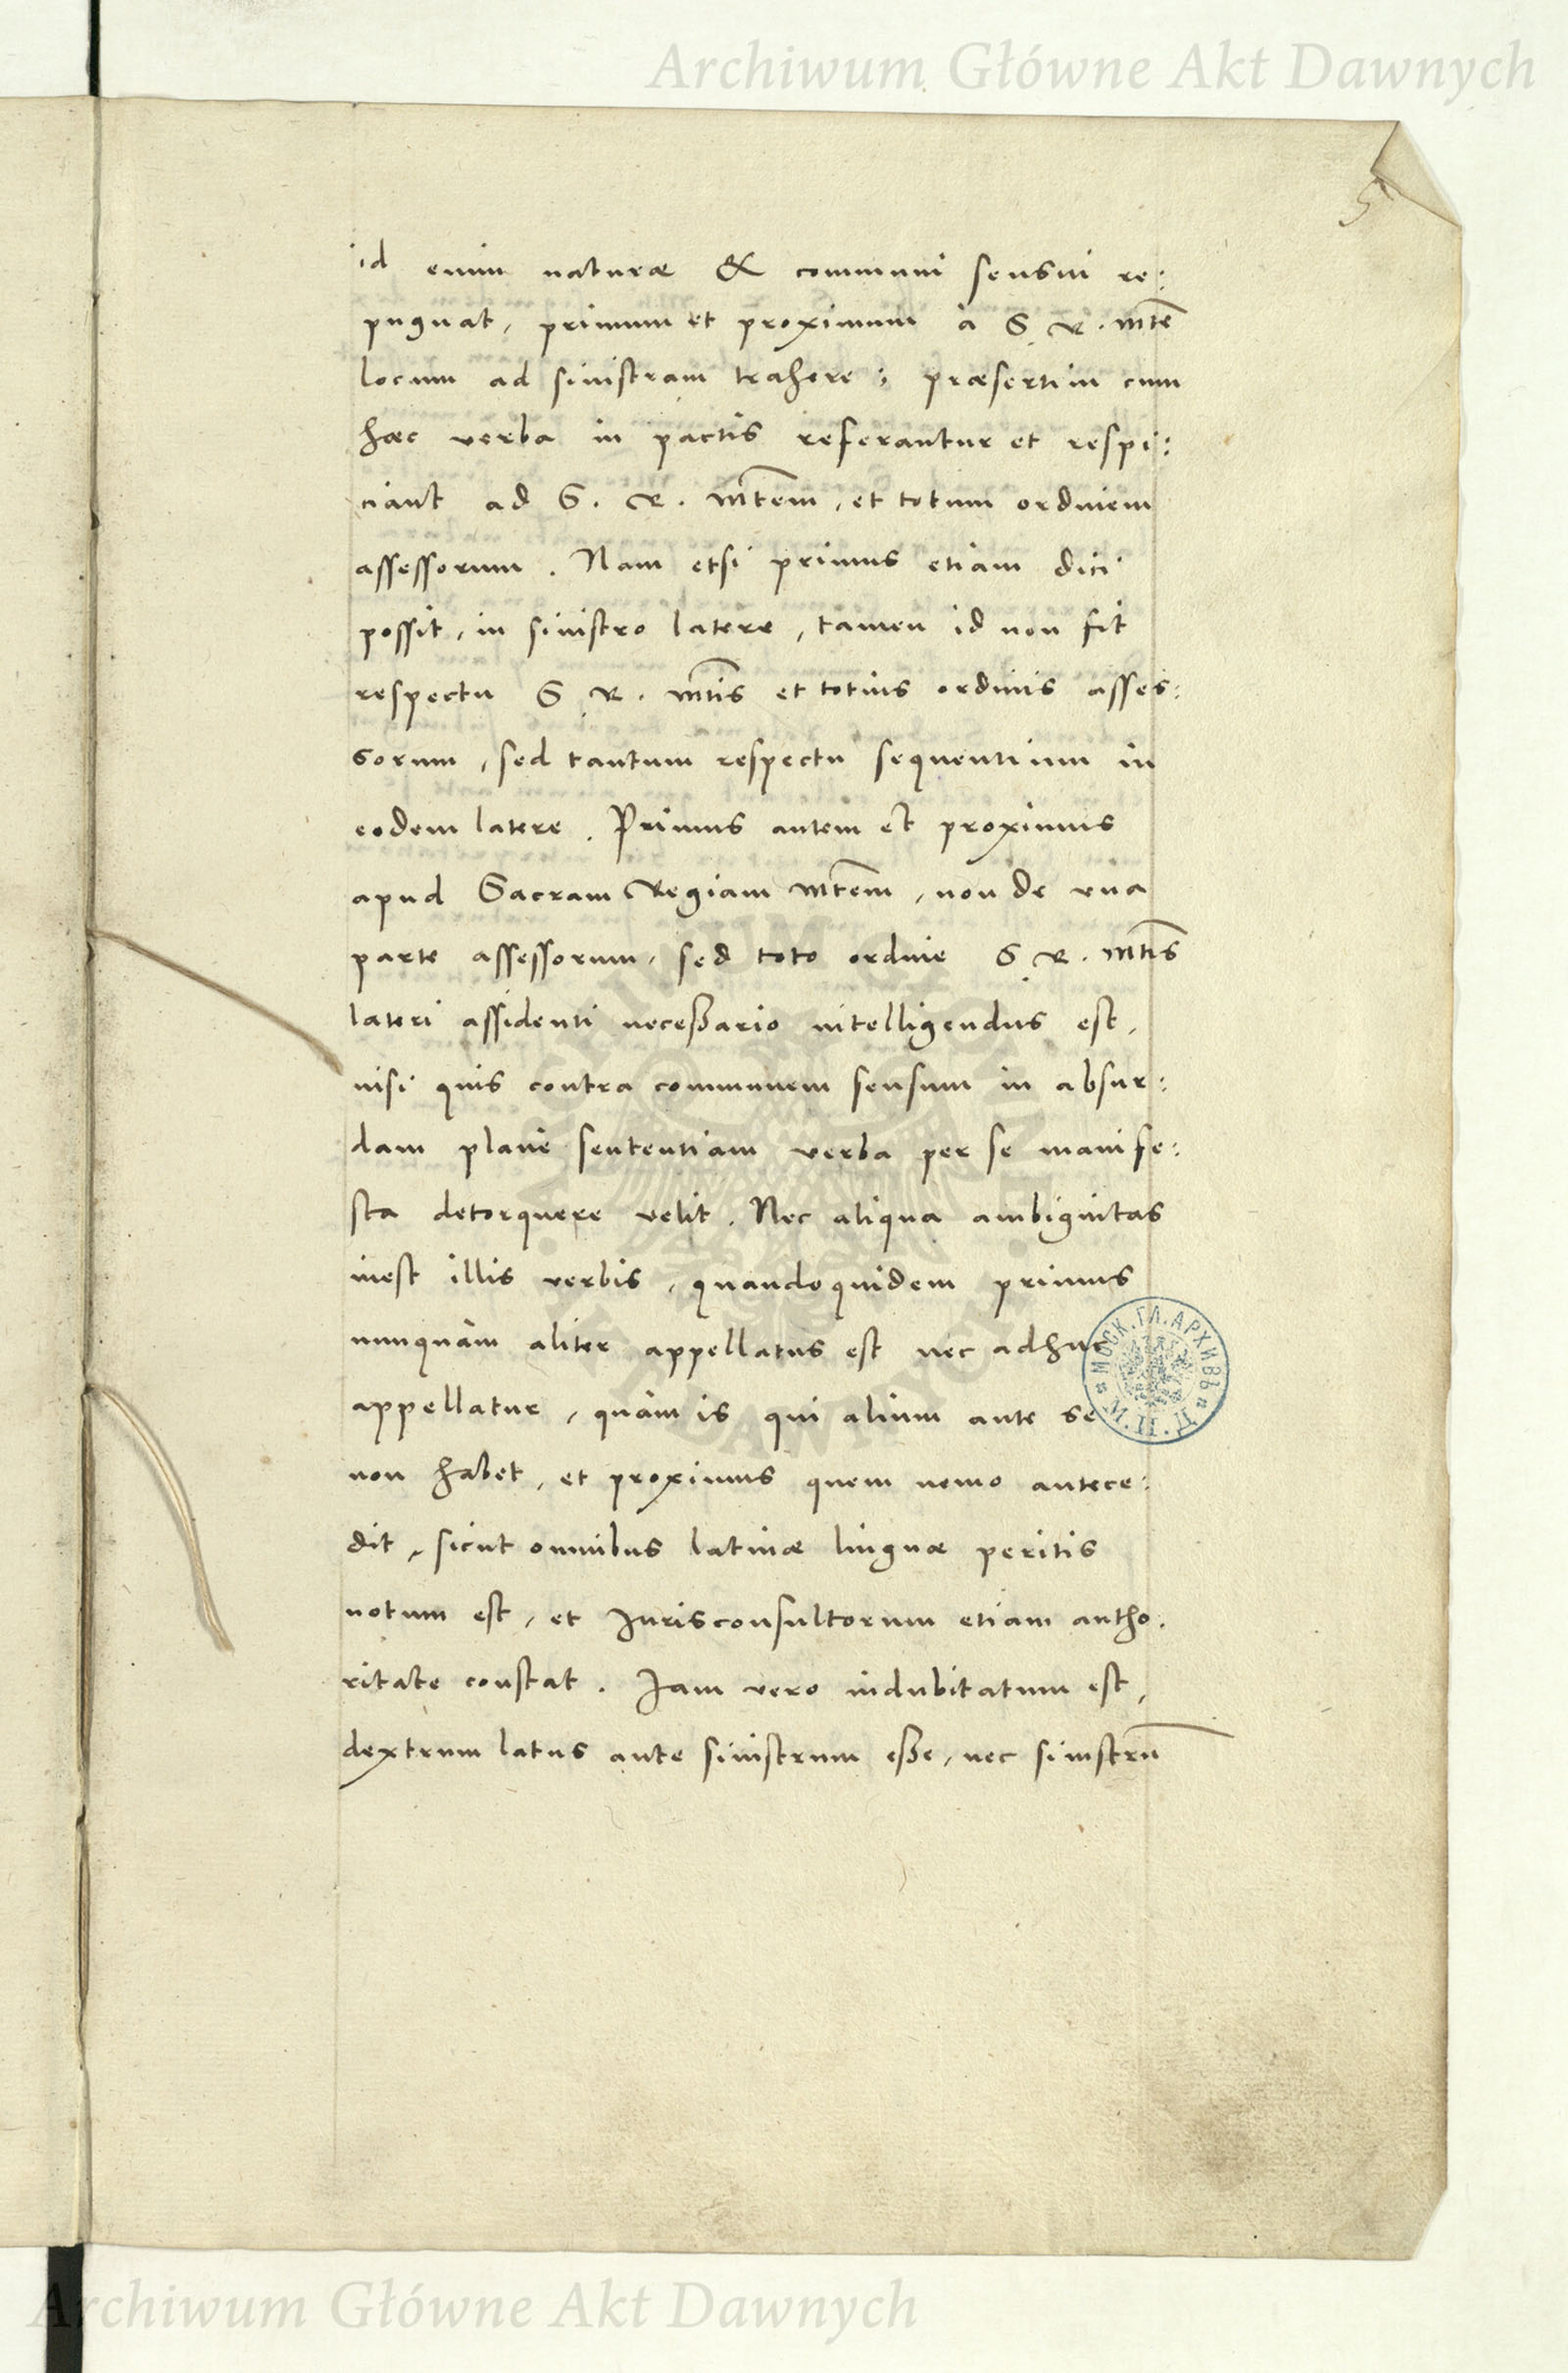 Archiwum Główne Akt Dawnych
5
id enim naturæ & communi sensui re:
pugnat, primum et proximum à S. R. Mte
locum ad sinistram trahere; præsertim cum
hæc verba in pactis referantur et respi:
ciant ad S. R. Mtem, et totum ordinem
assessorum. Nam etsi primus etiam dici
possit, in sinistro latere, tamen id non fit
respectu S. R. Mtis et totius ordinis asses:
sorum, sed tantum respectu sequentium in
eodem latere. Primus autem et proximus
apud Sacram Regiam Mtem, non de una
parte assessorum, sed toto ordine S. R. Mtis
lateri assidenti necessario intelligendus est,
nisi quis contra communem sensum in absur:
dam planè sententiam verba per se manife:
sta detorquere velit. Nec aliqua ambiguitas
inest illis verbis, quandoquidem primus
nunquàm aliter appellatus est nec adhuc
appellatur, quàm is qui alium ante se
non habet, et proximus quem nemo antece:
dit, sicut omnibus latinæ linguæ peritis
notum est, et Jurisconsultorum etiam autho.
ritate constat. Jam vero indubitatum est,
dextrum latus ante sinistrum esse, nec sinistrū
МОСК. ГЛ. АРХИВЪ
Archiwum Główne Akt Dawnych